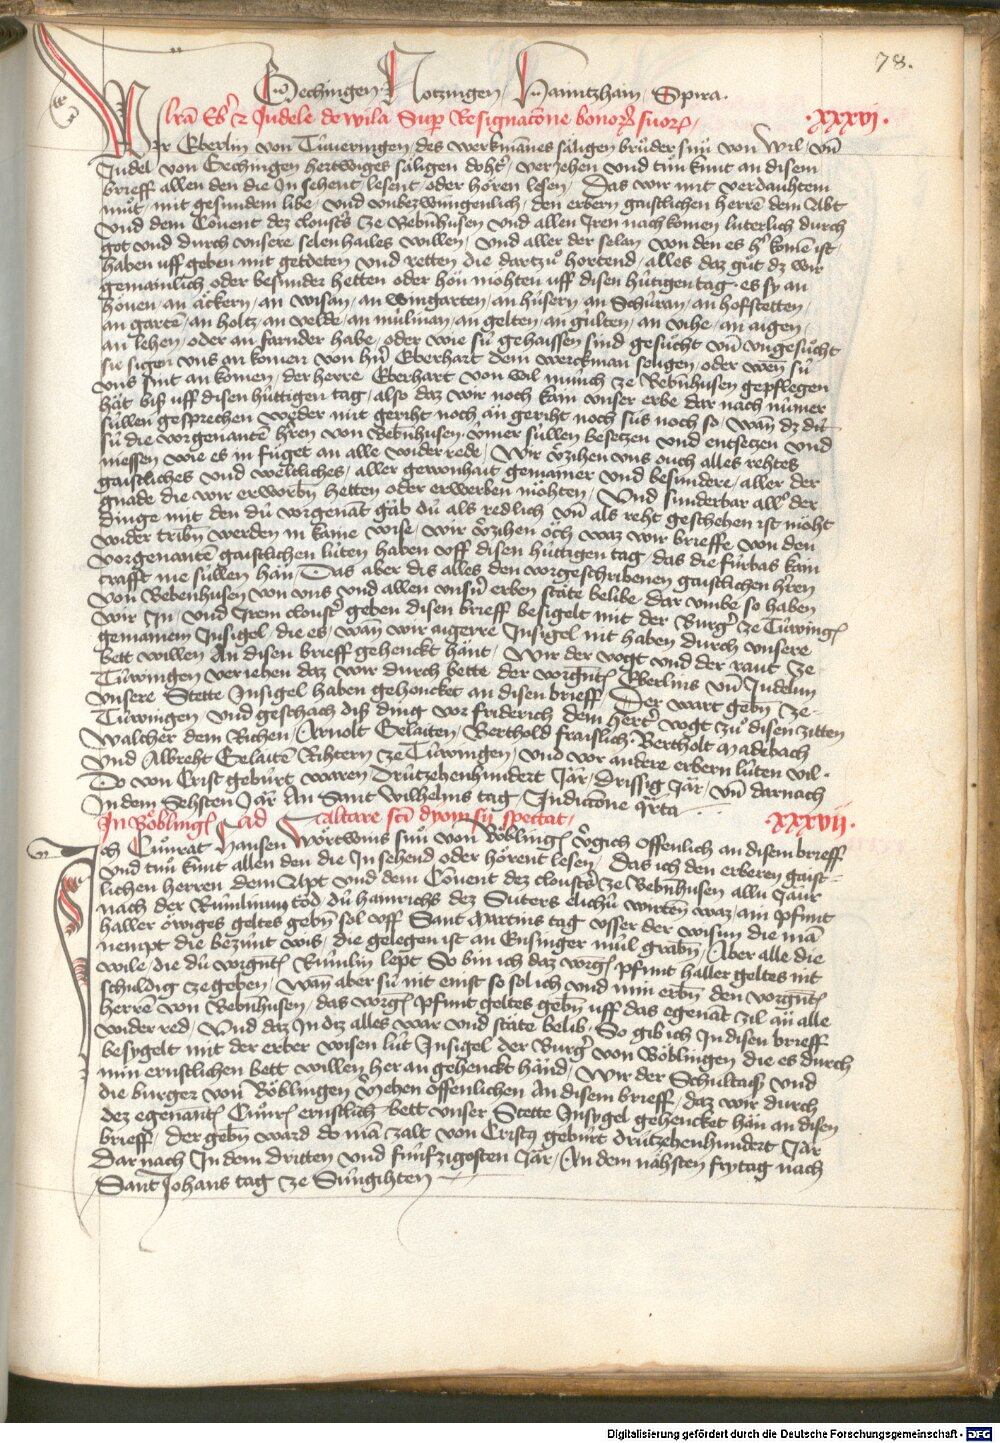 78.
Gechingen Notzingen Hainitzhain Spira.
lrā Eb̕ ⁊ Judele de wila Sup̱ Resignacōne bonoꝝ suoꝝ .xxxvj.
Wir Eberlin von Tüweringen, des werkmānes säligen brůder sůn von Wil, vn̄
Judel von Gechingen hertwiges säligen doht̕, verJehen vnd tůn kunt an disem
brieff allen den die Jn sehent, lesent, oder hören lesen, Das wir mit verdauhtem
můt, mit gesundem libe, vnd vnbezwungenlich, den erbern gaistlichen herrē dem Abt
vnd dem Cōuent dez closters ze Bebn̄husen vnd allen Jren nachkomen luterlich durch
got vnd durch vnsere selenhailes willen, vnd aller der selan von den es h̕ komē ist,
haben vff geben mit getdeten vnd retten die dartzů hortend, alles daz gůt dz wir
gemainlich oder besunder hetten oder hön möhten uff disen hütigen tag, es sy an
höuen, an äckern, an wisan, an wingarten, an hüsern, an Schüran, an hofstetten,
an gartē, an holtz, an velde, an mülinan, an gelten, an gülten, an vihe, an aigen,
an lehen, oder an farnder habe, oder wie sü gehaissen sind gesücht vn̄ vngesücht
sü sigen vns an komen von h̕n Eberhart dem werckman seligen, oder wen̄ sü
vns sint an komen, der herre Eberhart von wil münch ze Bebn̄husen gepflegen
hät biß uff disen hüttigen tag, also daz wir noch kain vnser erbe dar nach nümer
süllen gesprechen weder mit geriht noch än geriht noch sus noch so, wan̄ dz dü
sü die vorgenantē h̕ren von Bebn̄husen, ümer süllen besetzen vnd entsetzen vnd
niessen wie es in füget an alle wider rede, Wir v̕zihen vns ouch alles rehtes
gaistliches vnd weltliches, aller gewonhait gemainer vnd besundere, aller der
gnade die wir erworbn̄ hetten oder erwerben möhten, Vnd sunderbar all̕ der
dinge mit den dü vorgenāt gäb dü als redlich vn̄ als reht geschehen ist möht
wider tribn̄ werden in kaine wise, wir v̕zihen öch waz wir brieffe von den
vorgenantē gaistlichen lüten haben vff disen hüttigen tag, das die fürbas kain
crafft me süllen hän, Das aber dis alles den vorgeschribenen gaistlichen h̕ren
von Bebenhusen von vns vnd allen vnsn̄ erben stäte belibe, dar vmbe so haben
wir Jn, vnd Jrem closter geben disen brieff besigelt mit der Burg̕ ze Tüwinḡ
gemainem Jnsigel, die es, wan̄ wir aigerre Jnsigel nit haben durch vnsere
bett willen An disen brieff gehenckt hänt, Wir der vogt vnd der raut ze
Tüwingen veriehen daz wir durch bette der vorgn̄tē Eberlins vn̄ Judelun
vnsere Stette Jnsigel haben gehencket an disen brieff, Der wart gebn̄ ze
Tüwingen, vnd geschach diß ding vor friderich dem hert̕, vogt zů disen zitten
Walcher dem Richen, Arnolt Gelaiten, Berthold fraislich, Bertholt Madibach
vnd Albreht Gelaitē Rihtern ze Tüwingen, vnd vor andere erbern lüten vil.
Do von Crist gebürt waren Drützehenhundert Jär, Drissig Jär, vn̄ darnach
Jn dem Sehsten Jär An Sant wilhelms tag, Jndictōne qr̄ta
Jn Böblinḡ ad Altare sc̄i dyonisij spectat, .xxxvij.
Jch Cůnrat Hansen Wörtwins sůn von Böblinḡ v̕gich offenlich an disem brieff
vnd tůn kunt allen den die Jn sehend oder hörent lesen, Das ich den erberen gaist-
lichen herren dem Apt vnd dem Cōuent dez closters ze Bebn̄husen allü Jaur
nach der Rümlinun tod, dü hainrichs dez Suters elichü wirten̄ waz, ain pfunt
haller öwiges geltes gebn̄ sol voff Sant Martins tag vsser der wisun die mā
nempt die bezunt wis, die gelegen ist an Ensinger mül grabn̄, Aber alle die
wile, die dü vorgn̄t̄ Rümlin lept So bin ich daz vorḡ pfunt haller geltes nit
schuldig ze geben, Wan̄ aber sü nit enist so sol ich vnd min erbn̄ den vorgn̄t̄
herrē von Bebn̄husen, das vorḡ pfunt geltes gebn̄ uff das egenāt zil än alle
wider red, Vnd daz Jn diz alles war vnd stäte belib, So gib ich Jn disen brieff
besygelt mit der erber wisen lüt Jnsigel der Burg̕ von Böblingen die es durch
min ernstlichen bett willen her an gehenckt händ, Wir der Schulthaiß vnd
die burger von Böblingen v̕iehen offenlichen An disem brieff, daz wir durch
dez egenant̄ Cůnr̄ ernstlich bett vnser Stette Jnsygel gehencket hän an disen
brieff, der gebn̄ ward do mā zalt von Cristꝰ geburt drützehenhundert Jär
Dar nach Jn dem dritten vnd fünfzigosten Jär, An dem nähsten frytag nach
Sant Johans tag ze Süngihten
Digitalisierung gefördert durch die Deutsche Forschungsgemeinschaft - DFG